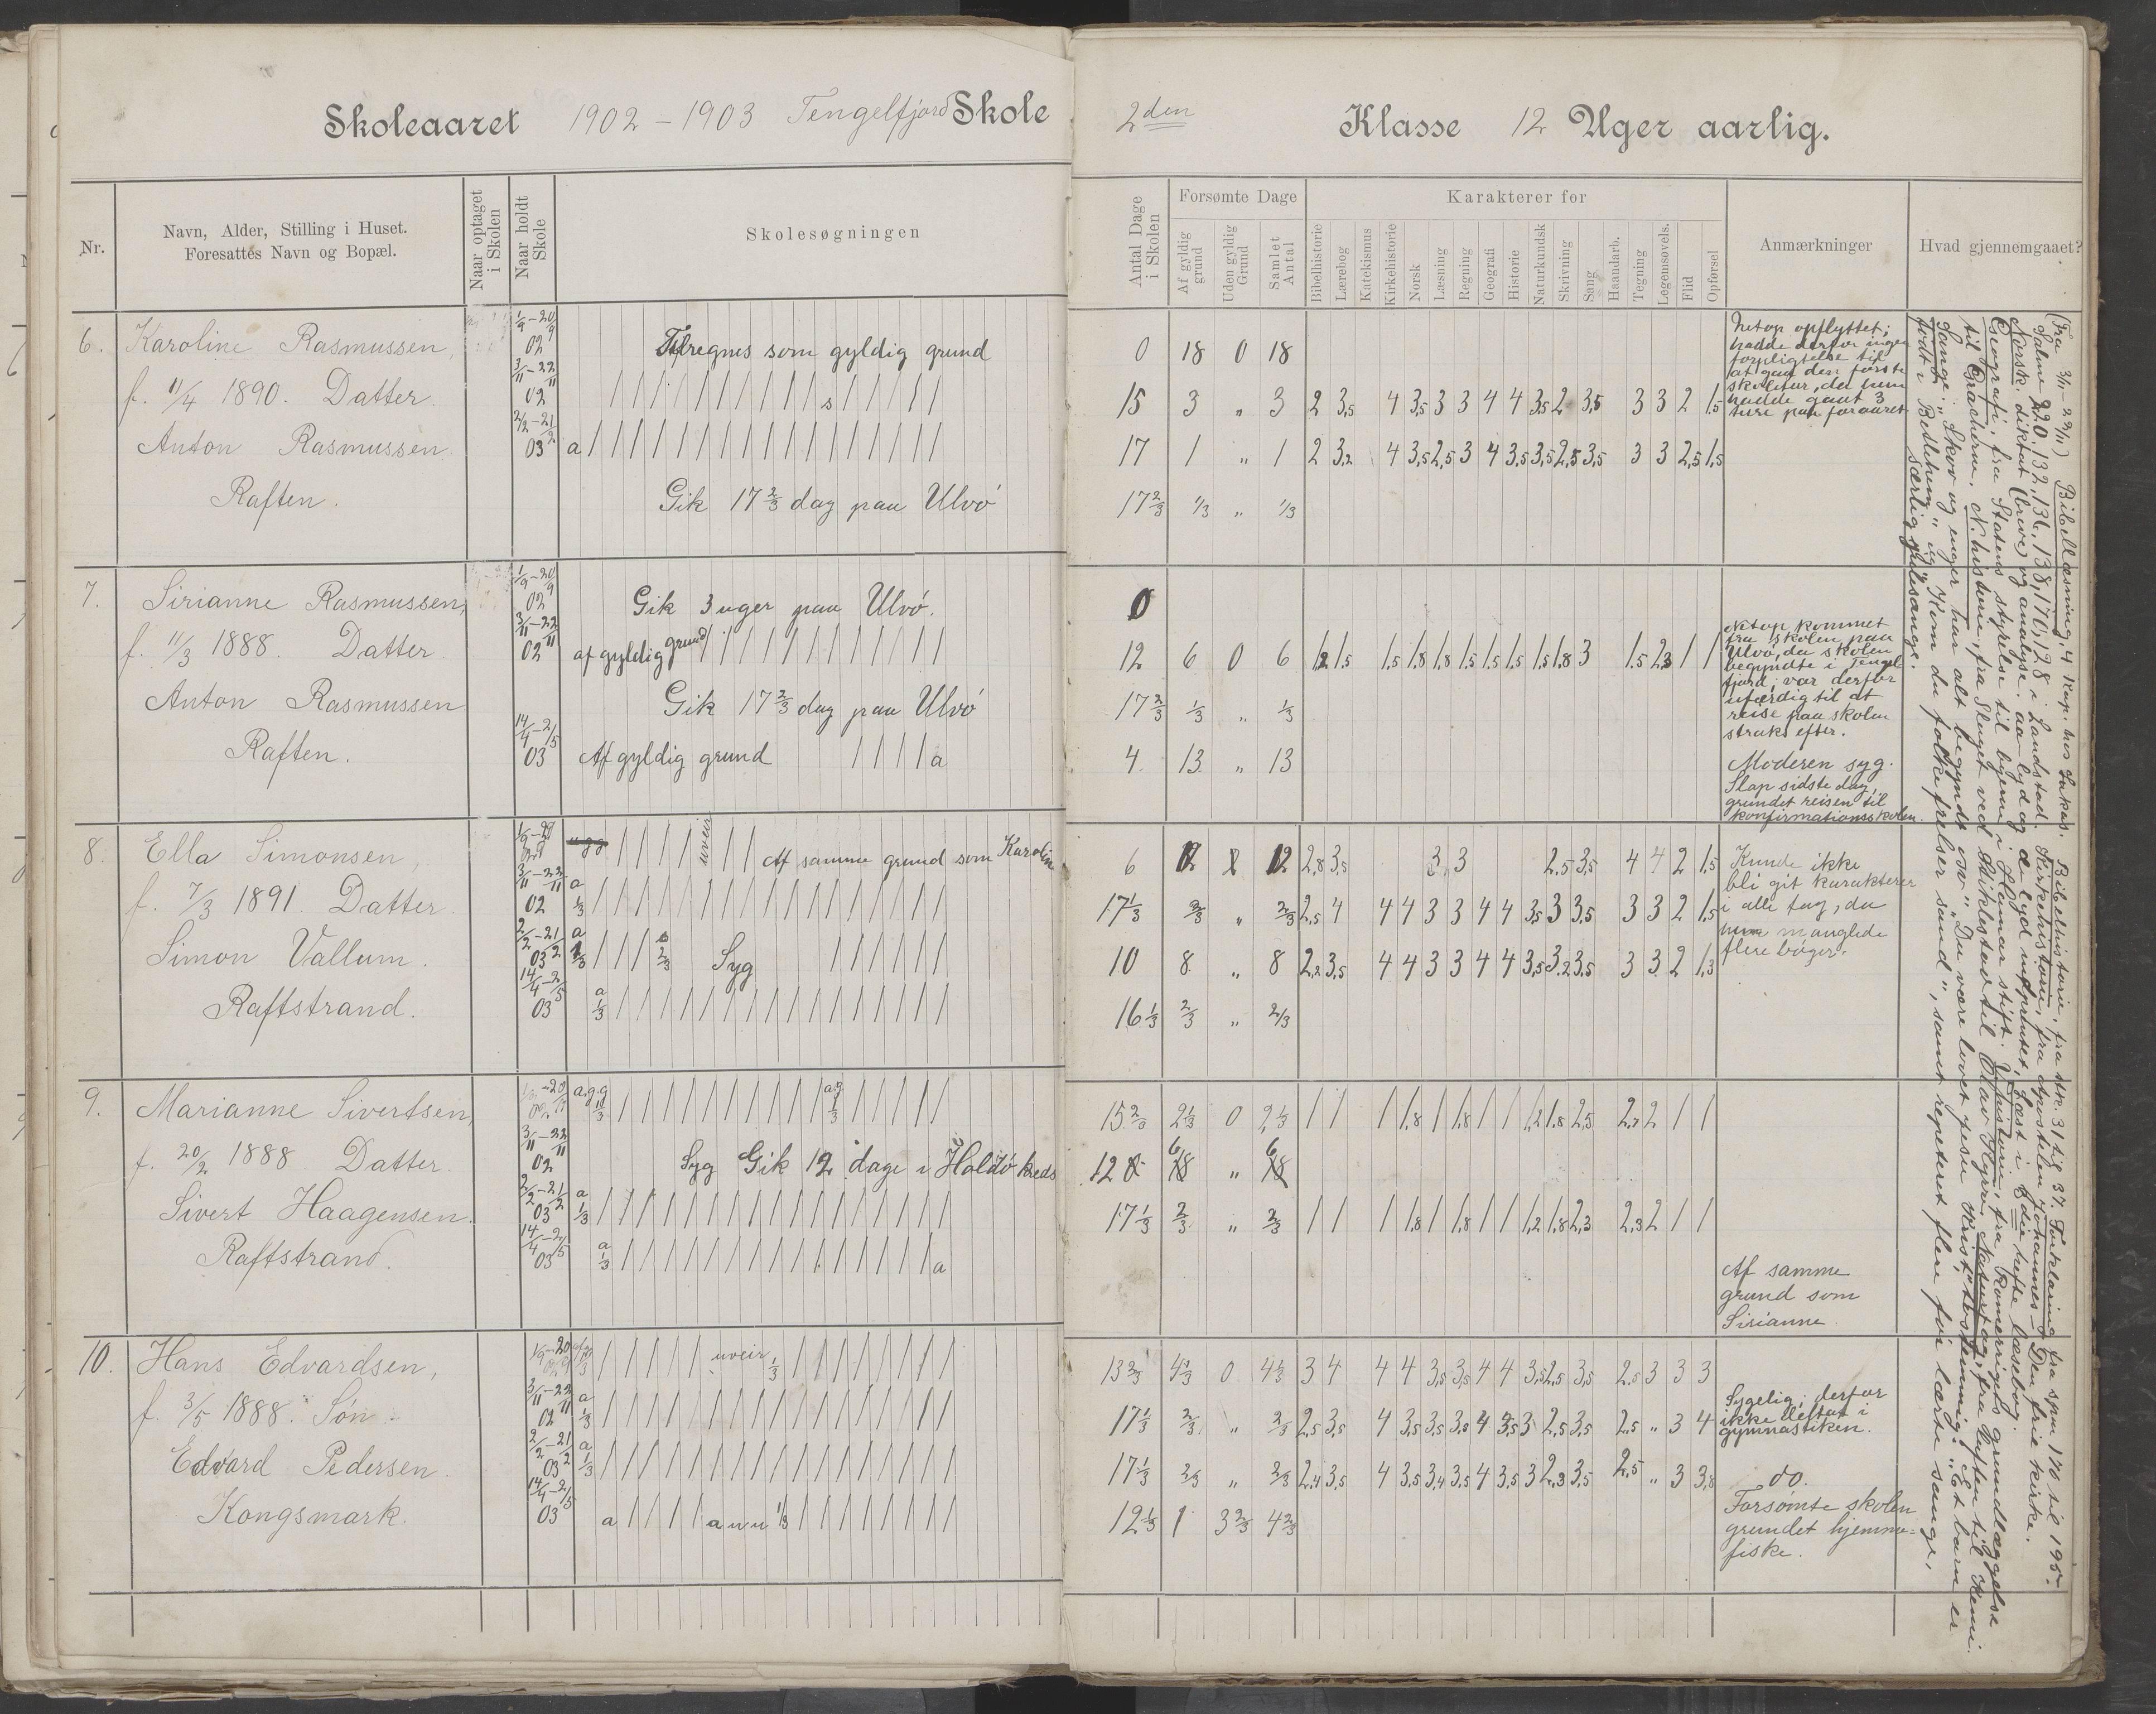 Skoleaaret 1902 - 1903 Tengelfjord Skole
2den Klasse 12 Uger aarlig.
Nr.
Navn, Alder, Stilling i Huset.
Foresattes Navn og Bopæl.
Naar optaget i Skolen
Naar holdt Skole
Skolesøgningen
Antal Dage i Skolen
Forsømte Dage
Af gyldig grund
Uden gyldig Grund
Samlet Antal
Karakterer for
Bibelhistorie
Lærebog
Katekismus
Kirkehistorie
Norsk
Læsning
Regning
Geografi
Historie
Naturkundsk
Skrivning
Sang
Haandarb.
Tegning
Legemsøvels.
Flid
Opførsel
Anmærkninger
Hvad gjennemgaaet?
6. Karoline Rasmussen,
f. 11/4 1890. Datter.
Anton Rasmussen
Raften.
1/9-20/9 02
3/11-22/11 02
2/2-21/2 03
Tilregnes som gyldig grund
Gik 17 2/3 dag paa Ulvö
0 18 0 18
15 3 " 3 2 3,5 4 3,5 3 3 4 4 3,5 2 3,5 3 3 2 1,5
17 1 " 1 2 3,2 4 3,5 2,5 3 4 3,5 3,5 2,5 3,5 3 3 2,5 1,5
17 2/3 1/3 " 1/3
Netop opflyttet;
hadde derfor ingen
forpligtelse til
at gaa den første
skoletur, da hun
hadde gaat 3
ture paa foraaret
7. Sirianne Rasmussen,
f. 11/3 1888. Datter
Anton Rasmussen
Raften.
1/9-20/9 02
3/11-22/11 02
14/4-2/5 03
Gik 3 uger paa Ulvö.
af gyldig grund
Gik 17 2/3 dag paa Ulvö
Af gyldig grund a
0
12 6 0 6 1,2 1,5 1,5 1,8 1,8 1,5 1,5 1,5 1,5 1,8 3 1,5 2,3 1 1
17 2/3 1/3 " 1/3
4 13 " 13
Netop kommet
fra skolen paa
Ulvö, da skolen
begyndte i Tengel
fjord; var derfor
uferdig til at
reise paa skolen
straks efter.
Moderen syg.
Slap sidste dag,
grundet reisen til
konfirmationsskolen.
8. Ella Simonsen,
f. 7/3 1891. Datter.
Simon Vallum.
Raftstrand.
3/11-22/11 02
2/2-21/2 03
14/4-2/5 03
Af samme grund som Karoline
Syg
6 12 12 2,8 3,5 3 3 2,5 3,5 4 4 2 1,5
17 1/3 2/3 " 2/3 2,5 4 4 4 3 3 4 4 3,5 3 3,5 3 3 2 1,5
10 8 " 8 2,2 3,5 4 4 3 3 4 4 3,5 3,2 3,5 3 3 2 1,3
16 1/3 2/3 " 2/3
Kunde ikke
bli git karakterer
i alle fag, da
hun manglede
flere bøger.
9. Marianne Sivertsen,
f. 20/2 1888 Datter.
Sivert Haagensen.
Raftstrand.
3/11-22/11 02
2/2-21/2 03
14/4-2/5 03
Syg Gik 12 dage i Holdö kreds
15 2/3 2 1/3 0 2 1/3 1 1 1 1,8 1 1,8 1 1 1,2 1,8 2,5 2,7 2 1 1
12 6 " 6
17 1/3 2/3 " 2/3 1 1 1 1,8 1 1,8 1 1 1,2 1,8 2,3 2,3 2 1 1
Af samme
grund som
Sirianne.
10. Hans Edvardsen,
f. 3/5 1888. Søn.
Edvard Pedersen.
Kongsmark.
3/11-22/11 02
2/2-21/2 03
14/4-2/5 03
uveir 1/3
13 2/3 4 1/3 0 4 1/3 3 4 4 4 3,5 3,5 4 4 3,5 2,5 3,5 2,5 3 3 3
17 1/3 2/3 " 2/3 2,5 3,5 4 3,5 3,5 3,8 4 3,5 3 2,5 3,5 2,5 " 3 4
17 1/3 2/3 " 2/3 2,4 3,5 4 3,5 3,4 3,5 4 3,5 3 2,3 3,5 2,5 " 3 3,8
12 1/3 1 3 2/3 4 2/3
Sygelig; derfor
ikke deltat i
gymnastiken.
do.
Forsømte skolen
grundet hjemme-
fiske.
(Fra 3/11-22/11) Bibellæsning, 4 kap. hos Lukas. Bibelhistorie, fra stk. 31 til 37. Forklaring fra spm 170 til 195.
Salme 220, 132, 136, 138, 170, 128 i Landstad. Kirkehistorie, fra Apostelen Johannes - Den frie kirke.
Norsk: diktat (breve) og analyse. aa-lyd og de lyd indprentet. Læst i 2die hefte læsebog.
Geografi, fra Statens styrelse til byerne i Hamar stift. Historie, fra Romerrigets grundlæggelse
til Gracherne. N. historie, fra Slaget ved Stiklestad til Olav Kyrre. Naturfag, fra Luften til Kemi.
Sange: "Skov og enger har alt begyndt os", "Du være lovet Jesu Krist", "Et barn er
født i Betlehem" og "Kom du folkefrelser sand", samt repeteret flere før lærte sange,
særlig julesange.